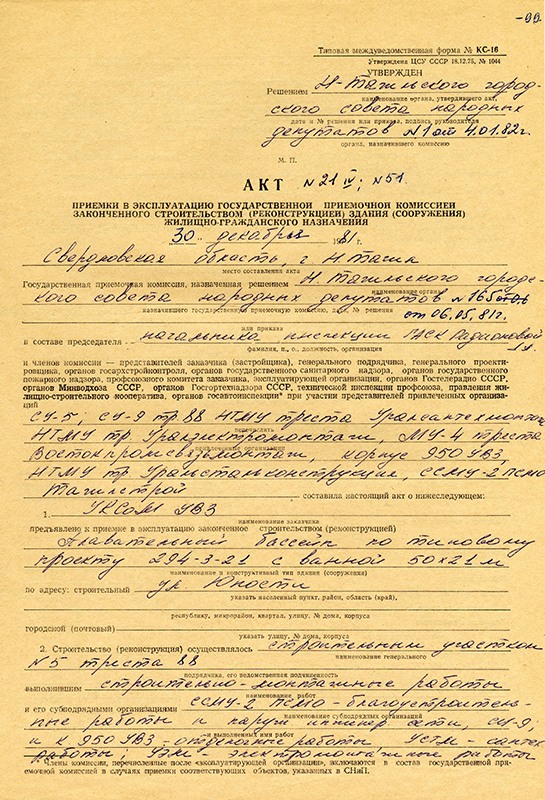 -99.
Типовая междуведомственная форма № КС-16
Утверждена ЦСУ СССР 18.12.75, № 1044
УТВЕРЖДЕН
Решением Н-Тагильского город-
наименование органа, утвердившего акт,
ского совета народных
дата и № решения или приказа, подпись руководителя
депутатов №1 от 4.01.82г.
органа, назначившего комиссию
М. П.
АКТ №21 IV; №51
ПРИЕМКИ В ЭКСПЛУАТАЦИЮ ГОСУДАРСТВЕННОЙ ПРИЕМОЧНОЙ КОМИССИЕЙ
ЗАКОНЧЕННОГО СТРОИТЕЛЬСТВОМ (РЕКОНСТРУКЦИЕЙ) ЗДАНИЯ (СООРУЖЕНИЯ)
ЖИЛИЩНО-ГРАЖДАНСКОГО НАЗНАЧЕНИЯ
„30" декабря 1981г.
Свердловская область, г. Н Тагил
место составления акта
Государственная приемочная комиссия, назначенная решением Н. Тагильского городс-
наименование органа,
кого совета народных депутатов №165
назначившего государственную приемочную комиссию, дата, № решения
от 06.05.81г.
или приказа
в составе председателя начальника инспекции ГАСК
фамилия, и., о., должность, организация
и членов комиссии — представителей заказчика (застройщика), генерального подрядчика, генерального проекти-
ровщика, органов госархстройконтроля, органов государственного санитарного надзора, органов государственного
пожарного надзора, профсоюзного комитета заказчика, эксплуатирующей организации, органов Гостелерадио СССР,
органов Минводхоза СССР, органов Госгортехнадзора СССР, технической инспекции профсоюза, правления жи-
лищно-строительного кооператива, органов госавтоинспекции* при участии представителей привлеченных организа-
ций
СУ-5, СУ-9 тр. 88 НТМУ треста Уралсантехмонтаж
перечислить
НТМУ тр. Уралэлектромонтаж, МУ-4 треста
привлеченные организации
Востокпромсвязьмонтаж, корпус 950 УВЗ,
НТМУ тр Уралстальконструкция, ССМУ-2 ПСМО
Тагилстрой составила настоящий акт о нижеследующем:
1. УКСом УВЗ
наименование заказчика
предъявлено к приемке в эксплуатацию законченное строительством (реконструкцией)
Плавательный бассейн по типовому
проекту 294-3-21 с ванной 50х21 м
наименование и конструктивный тип здания (сооружения)
по адресу: строительный ул. Юности
указать населенный пункт, район, область (край),
республику, микрорайон, квартал, улицу, № дома, корпуса
городской (почтовый)
указать улицу, № дома, корпуса
2. Строительство (реконструкция) осуществлялось строительным участком
наименование генерального
№5 треста 88
подрядчика, его ведомственная подчиненность
выполнившим строительно-монтажные работы
наименование работ
и его субподрядными организациями ССМУ-2 ПСМО-благоустроитель-
наименование субподрядных организаций
ные работы и наружн инженер. сети, СУ-9;
и выполненных ими работ
и к 950 УВЗ - отделочные работы УСТМ - сантех
работы; УЭМ - электромонтажные работы
* Члены комиссии, перечисленные после «эксплуатирующей организации», включаются в состав государственной при-
емочной комиссией в случаях приемки соответствующих объектов, указанных в СНиП.